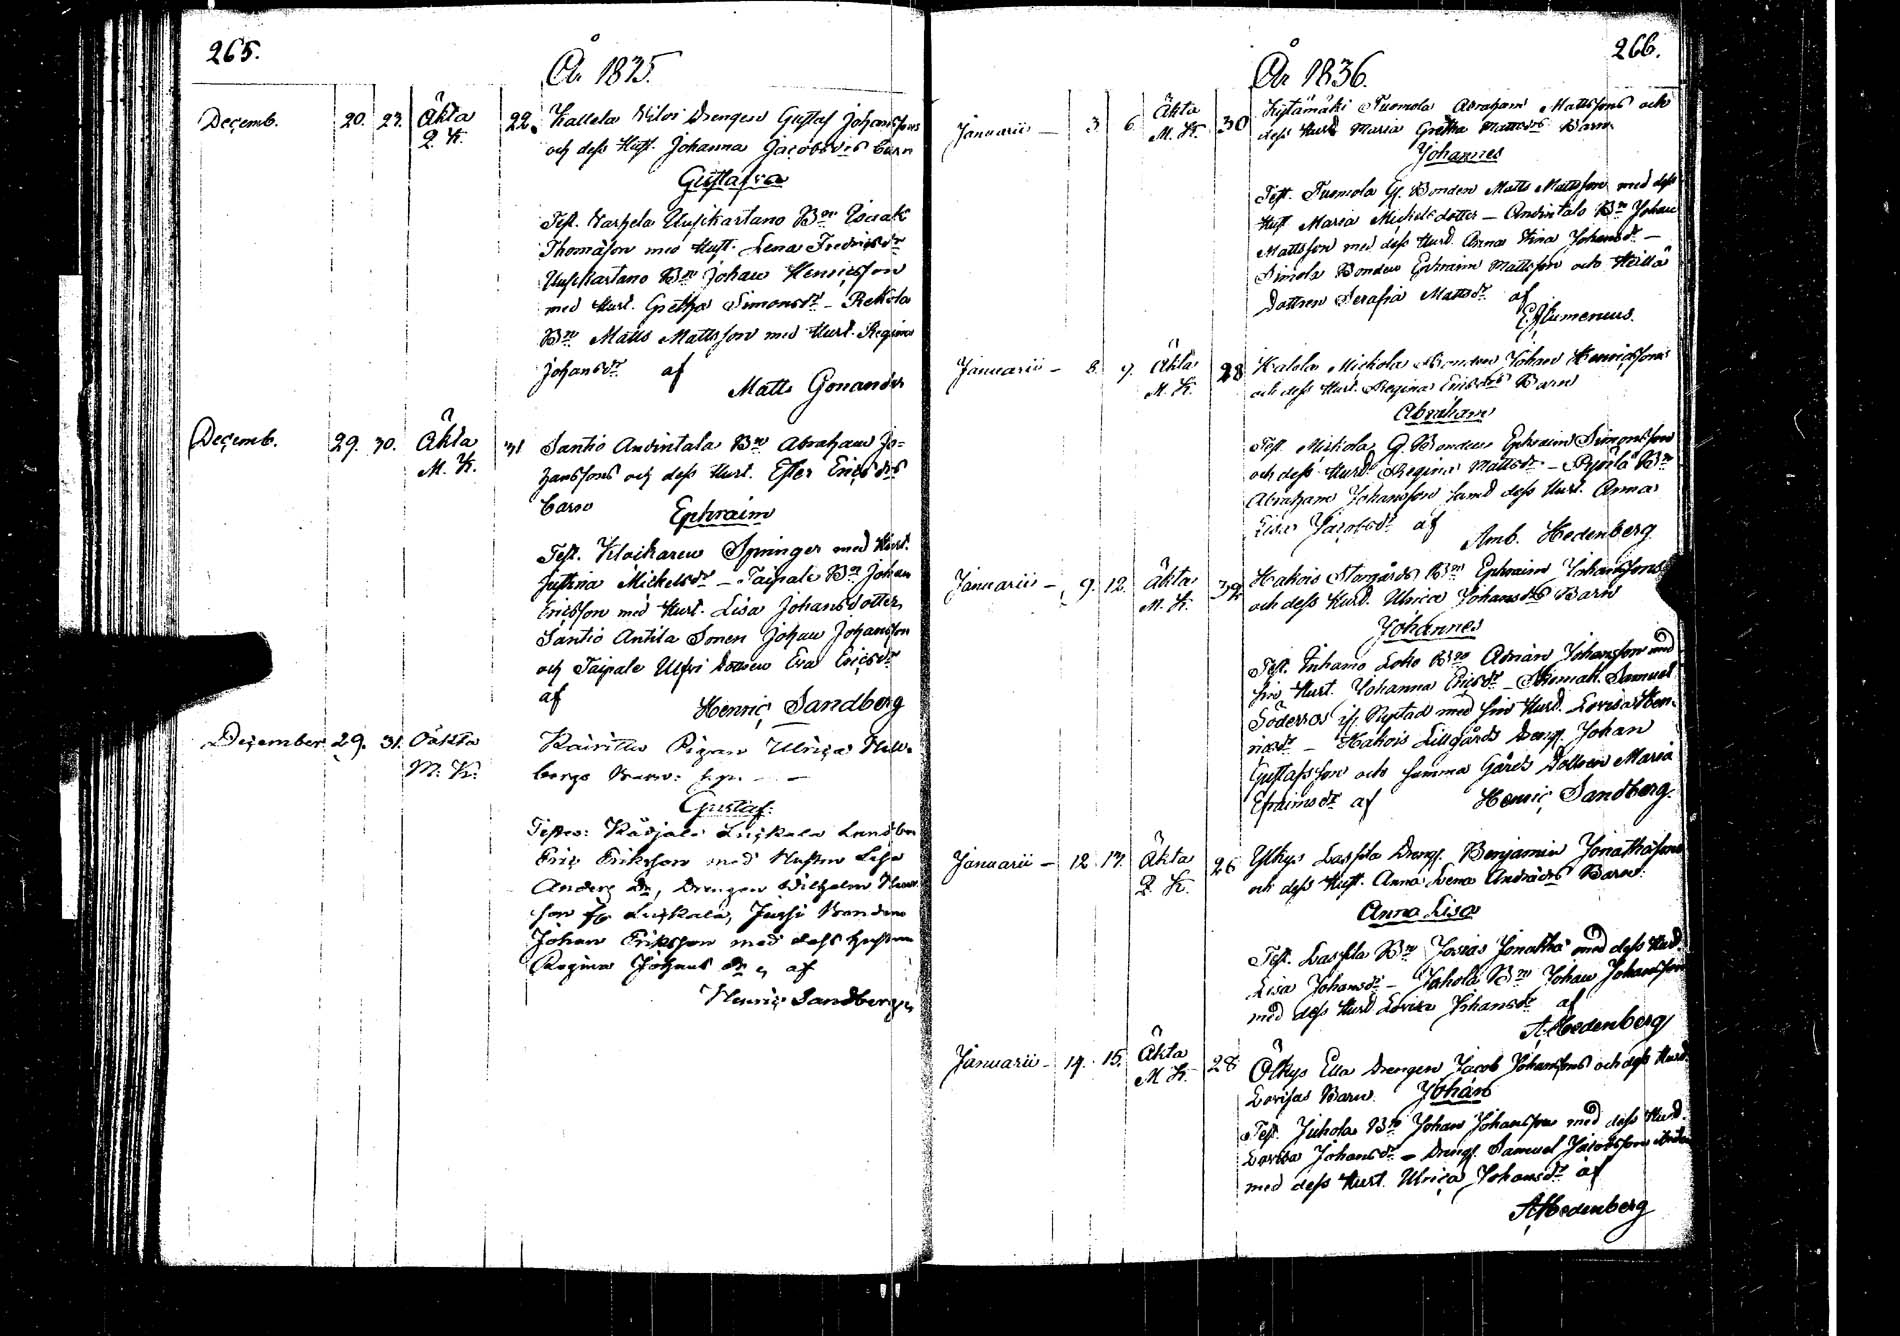 265.
År 1835.
Decemb. 20. 27. Äkta 22. Kallela Drengen Gustaf Johanssons
Q. K. och dess Hust. Johanna Jacobsdrs barn
Gustafva
Test. Uusikartano Bn Isaak
Thomasson med Hust. Lena Fredricsdr
Uusikartano Bn Johan Henricsson
med Hust. Gretha Simonsdr – Rekola
Bn Matts Mattsson med Hust. Regina
Johansdr af
Matts Gonander
Decemb. 29. 30. Äkta 31 Santio Anvintala Bn Abraham Jo=
M. K. hanssons och dess Hust. Ester Ericsdrs
barn
Ephraim
Test. Klockaren Springer med Hust.
Justina Michelsdr – Taipale Bn Johan
Ericsson med Hust. Lisa Johansdotter,
Santio Antila Sonen Johan Johansson
och Taipale Dottren Eva Ericsdr
af
Henric Sandberg
December 29. 31. Oäkta Pigan Ulrica
M. K. bergs Barn:
Gustaf.
Testes: Luckala
Eric Eriksson med Hustru Lisa
Anders dr, Drengen Wilhelm
son fr Luckala, Jussi Bonden
Johan Eriksson med dess hustru
Regina Johans dr, af
Henric Sandberg
266.
År 1836.
Januarii – 3. 6. Äkta 30 Tuomola Abraham Mattssons och
M. K. dess Hust Maria Gretha Mattsdrs Barn
Johannes
Test. Tuomola G. Bonden Matts Mattsson med dess
Hust Maria Michelsdotter – Anvintalo Bn Johan
Mattsson med dess Hust. Anna Stina Johansdr –
Simola Bonden Ephraim Mattsson och Heilä
Dottren Serafia Mattsdr af
Januarii – 8. 9. Äkta 28 Mickola Bonden Johan Henricssons
M. K. och dess Hust. Regina Ericsdrs Barn
Abraham
Test. Mickola G. Bonden Ephraim Simonsson
och dess Hust. Regina Mattsdr – Bn
Abraham Johansson samt dess Hust. Anna
Lisa Jacobsdr af
Amb. Hedenberg
Januarii – 9. 12. Äkta 32 Hakois Storgårds Bn Ephraim Johanssons
M. K. och dess Hust. Ulrica Johansdrs Barn
Johannes
Test. Inhamo Loko Bn Adrian Johansson med
sin Hust. Johanna Ericsdr – Skomak. Samuel
Söderros if. Nystad med sin Hust. Lovisa Hen-
ricsdr – Hakois Lillgårds Dreng. Johan
Gustafsson och samma Gårds Dottren Maria
Efraimsdr af Henric Sandberg.
Januarii – 12. 17. Äkta 26 Ylkys Lassila Dreng. Benjamin Jonathassons
Q. K. och dess Hust. Anna Lena Andersdrs Barn:
Anna Lisa
Test. Lassila Bn Josias Jonathas med dess Hust.
Lisa Johansdr – Juhola Bn Johan Johansson
med dess Hust Lovisa Johansdr af
A. Hedenberg
Januarii – 14. 15. Äkta 28 Ölkys Ella Drengen Jacob Johanssons och dess Hust.
M. K. Lovisas Barn. Johan
Test. Juhola Bn Johan Johansson med dess Hust.
Lovisa Johansdr – Dreng. Samuel Jacobsson
med dess Hust. Ulrica Johansdr af
A. Hedenberg